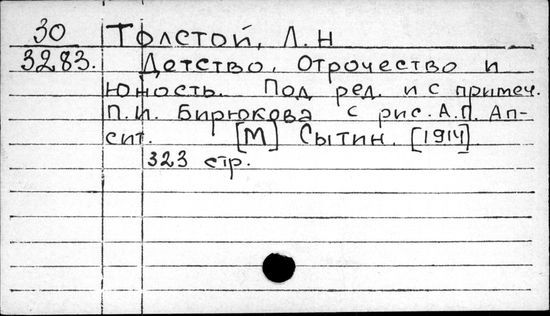 30 Толстой, Л.Н
3283. Детство. Отрочество и
Юность. Под ред. и с примеч.
П.И. Бирюкова с рис. А.П. Ап-
сит. [М] Сытин. [1914].
323 стр.